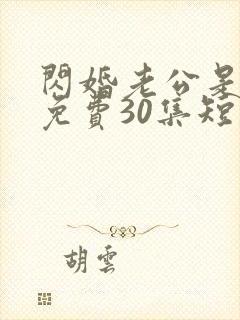 閃婚老公是
免費30集短
胡雲